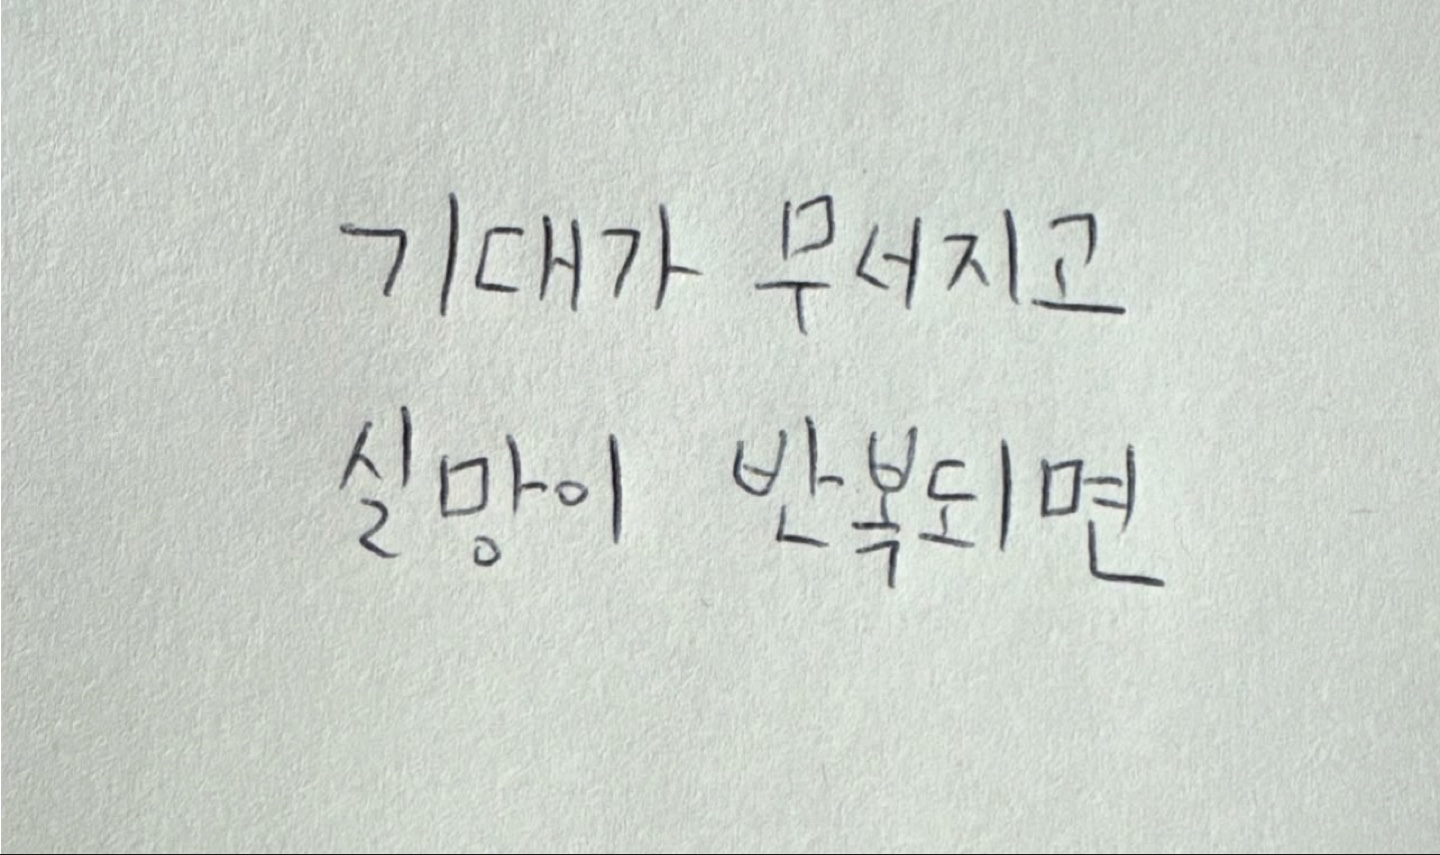 기대가 무너지고
실망이 반복되면